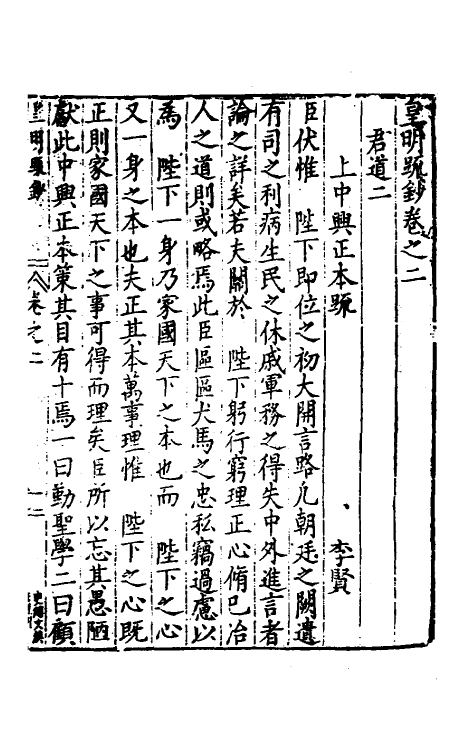 皇明䟽鈔卷之二
君道二
上中興正本䟽 李賢
臣伏惟 陛下即位之初大開言路凡朝廷之闕遺
有司之利病生民之休戚軍務之得失中外進言者
論之詳矣若夫關於 陛下躬行窮理正心脩已治
人之道則或略焉此臣區區犬馬之忠私竊過慮以
為 陛下一身乃家國天下之本也而 陛下之心
又一身之本也夫正其本萬事理惟 陛下之心既
正則家國天下之事可得而理矣臣所以忘其愚陋
獻此中興正本策其目有十焉一曰勤聖學二曰顧
皇明䟽鈔 卷之二